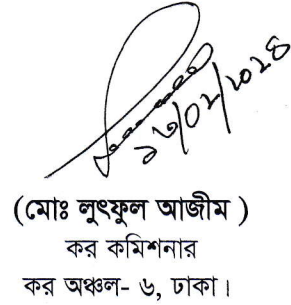 ১৮/০২/২০২৪
(মোঃ লুৎফুল আজীম )
কর কমিশনার
কর অঞ্চল- ৬, ঢাকা।